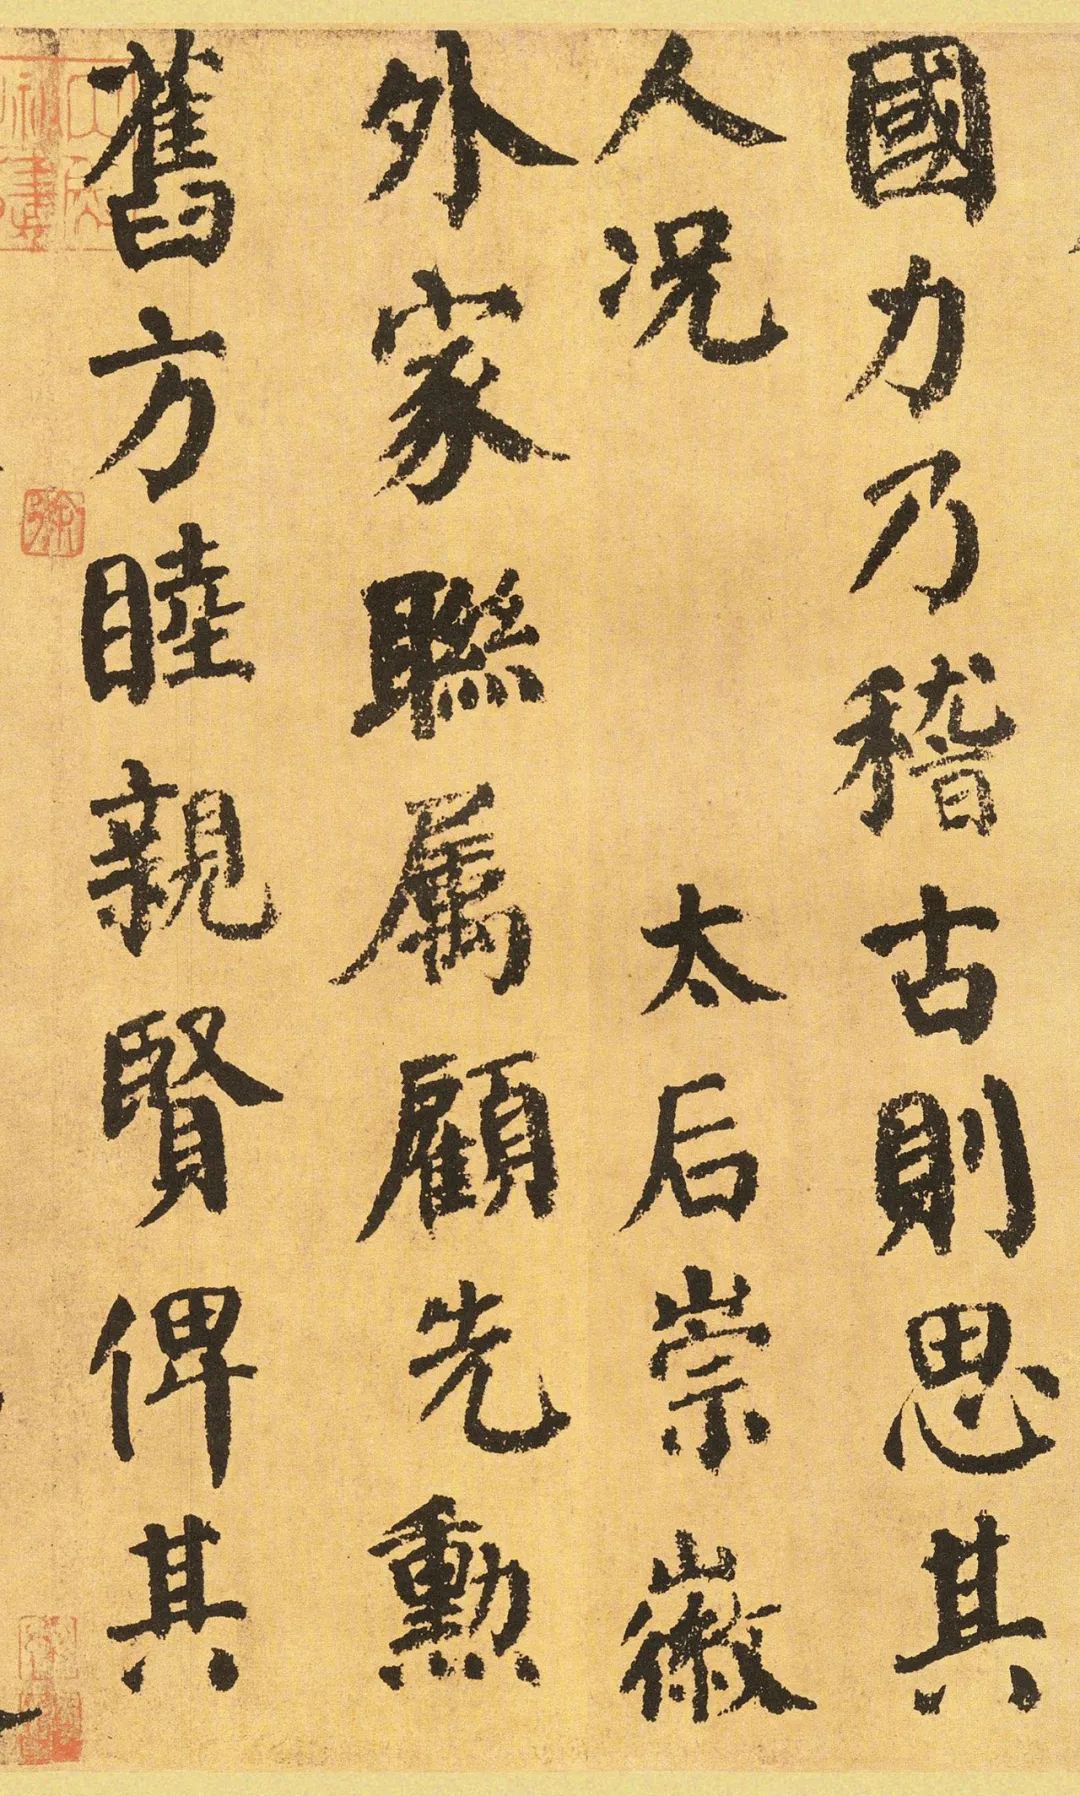 國力乃稽古則思其
人况 太后崇徽
外家聯属顧先勲
舊方睦親賢俾其